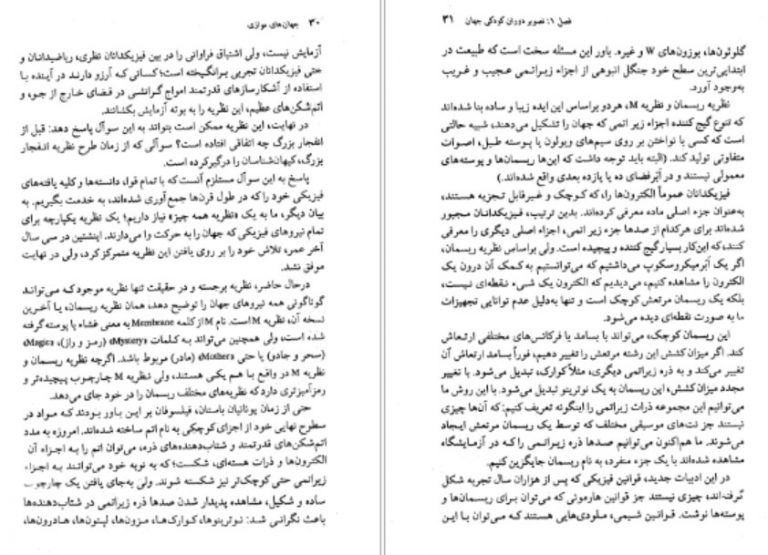 ۳۰ جهان‌های موازی
آزمایش نیست، ولی اشتیاق فراوانی را در بین فیزیکدانان نظری، ریاضیدانان و
حتی فیزیکدانان تجربی برانگیخته است؛ کسانی که آرزو دارند در آینده با
استفاده از آشکارسازهای قدرتمند امواج گرانشی در فضای خارج از جو، و
اتم‌شکن‌های عظیم، این نظریه را به بوته آزمایش بکشانند.
در نهایت، این نظریه ممکن است بتواند به این سوآل پاسخ دهد: قبل از
انفجار بزرگ چه اتفاقی افتاده است؟ سوآلی که از زمان طرح نظریه انفجار
بزرگ، کیهان‌شناسان را درگیر کرده است.
پاسخ به این سوآل مستلزم آنست که با تمام قوا، دانسته‌ها و کلیه یافته‌های
فیزیکی خود را که در طول قرن‌ها جمع‌آوری شده‌اند، به خدمت بگیریم. به
بیان دیگر، ما به یک «نظریه همه چیز» نیاز داریم؛ یک نظریه یکپارچه برای
تمام نیروهای فیزیکی که جهان را به حرکت وا می‌دارند. اینشتین در سی سال
آخر عمر، تلاش خود را بر روی یافتن این نظریه متمرکز کرد، ولی در نهایت
موفق نشد.
درحال حاضر، نظریه برجسته و در حقیقت تنها نظریه موجود که می‌تواند
گوناگونی همه نیروهای جهان را توضیح دهد، همان نظریه ریسمان، یا آخرین
نسخه آن، نظریه M است. نام M از کلمه Membrane به معنی غشاء یا پوسته گرفته
شده است، ولی همچنین می‌تواند به کلمات «Mystery» (رمز و راز)، «Magic»
(سحر و جادو) یا حتی «Mother» (مادر) مربوط باشد. اگرچه نظریه ریسمان و
نظریه M در واقع با هم یکی هستند، ولی نظریه M چارچوب پیچیده‌تر و
رمزآمیزتری دارد که نظریه‌های مختلف ریسمان را در خود جای می‌دهد.
حتی از زمان یونانیان باستان، فیلسوفان بر این باور بودند که مواد در
سطوح نهایی خود از اجزای کوچکی به نام اتم ساخته شده‌اند. امروزه به مدد
اتم‌شکن‌های قدرتمند و شتاب‌دهنده‌های ذره، می‌توان اتم را به اجزاء آن
الکترون‌ها و ذرات هسته‌ای، شکست؛ که به نوبه خود می‌توانند به اجزاء
زیراتمی حتی کوچک‌تر نیز شکسته شوند. ولی به‌جای یافتن یک چارچوب
ساده و شکیل، مشاهده پدیدار شدن صدها ذره زیراتمی در شتاب‌دهنده‌ها
باعث نگرانی شد: نوترینوها، کوارک‌ها، مزون‌ها، لپتون‌ها، هادرون‌ها،
فصل ۱: تصویر دوران کودکی جهان ۳۱
گلوئون‌ها، بوزون‌های W و غیره. باور این مسئله سخت است که طبیعت در
ابتدایی‌ترین سطح خود جنگل انبوهی از اجزاء زیراتمی عجیب و غریب
به‌وجود آورد.
نظریه ریسمان و نظریه M، هر دو براساس این ایده زیبا و ساده بنا شده‌اند
که تنوع گیج کننده اجزاء زیر اتمی که جهان را تشکیل می‌دهند، شبیه حالتی
است که کسی با نواختن بر روی سیم‌های ویولون یا پوسته طبل، اصوات
متفاوتی تولید کند. (البته باید توجه داشت که این‌ها ریسمان‌ها و پوسته‌های
معمولی نیستند و در اَبَرفضای ده یا یازده بعدی واقع شده‌اند.)
فیزیکدانان عموماً الکترون‌ها را، که کوچک و غیرقابل تجزیه هستند،
به‌عنوان جزء اصلی ماده معرفی کرده‌اند. بدین ترتیب، فیزیکدانان مجبور
شده‌اند برای هرکدام از صدها جزء زیر اتمی، اجزاء اصلی دیگری را معرفی
کنند، که این کار بسیار گیج کننده و پیچیده است. ولی براساس نظریه ریسمان،
اگر یک اَبَرمیکروسکوپ می‌داشتیم که می‌توانستیم به کمک آن درون یک
الکترون را مشاهده کنیم، می‌دیدیم که الکترون یک شیء نقطه‌ای نیست،
بلکه یک ریسمان مرتعش کوچک است و تنها به‌دلیل عدم توانایی تجهیزات
ما به صورت نقطه‌ای دیده می‌شود.
این ریسمان کوچک، می‌تواند با بسامد یا فرکانس‌های مختلفی ارتعاش
کند. اگر میزان کشش این رشته مرتعش را تغییر دهیم، فوراً بسامد ارتعاش آن
تغییر می‌کند و به ذره زیراتمی دیگری، مثلاً کوارک، تبدیل می‌شود. با تغییر
مجدد میزان کشش، این ریسمان به یک نوترینو تبدیل می‌شود. با این روش ما
می‌توانیم این مجموعه ذرات زیراتمی را اینگونه تعریف کنیم: که آن‌ها چیزی
نیستند جز نت‌های موسیقی مختلف که توسط یک ریسمان مرتعش ایجاد
می‌شوند. ما هم‌اکنون می‌توانیم صدها ذره زیراتمی را که در آزمایشگاه
مشاهده شده‌اند با یک جزء منفرد، به نام ریسمان جایگزین کنیم.
در این ادبیات جدید، قوانین فیزیکی که پس از هزاران سال تجربه شکل
گرفته‌اند، چیزی نیستند جز قوانین هارمونی که می‌توان برای ریسمان‌ها و
پوسته‌ها نوشت. قوانین شیمی، ملودی‌هایی هستند که می‌توان با این